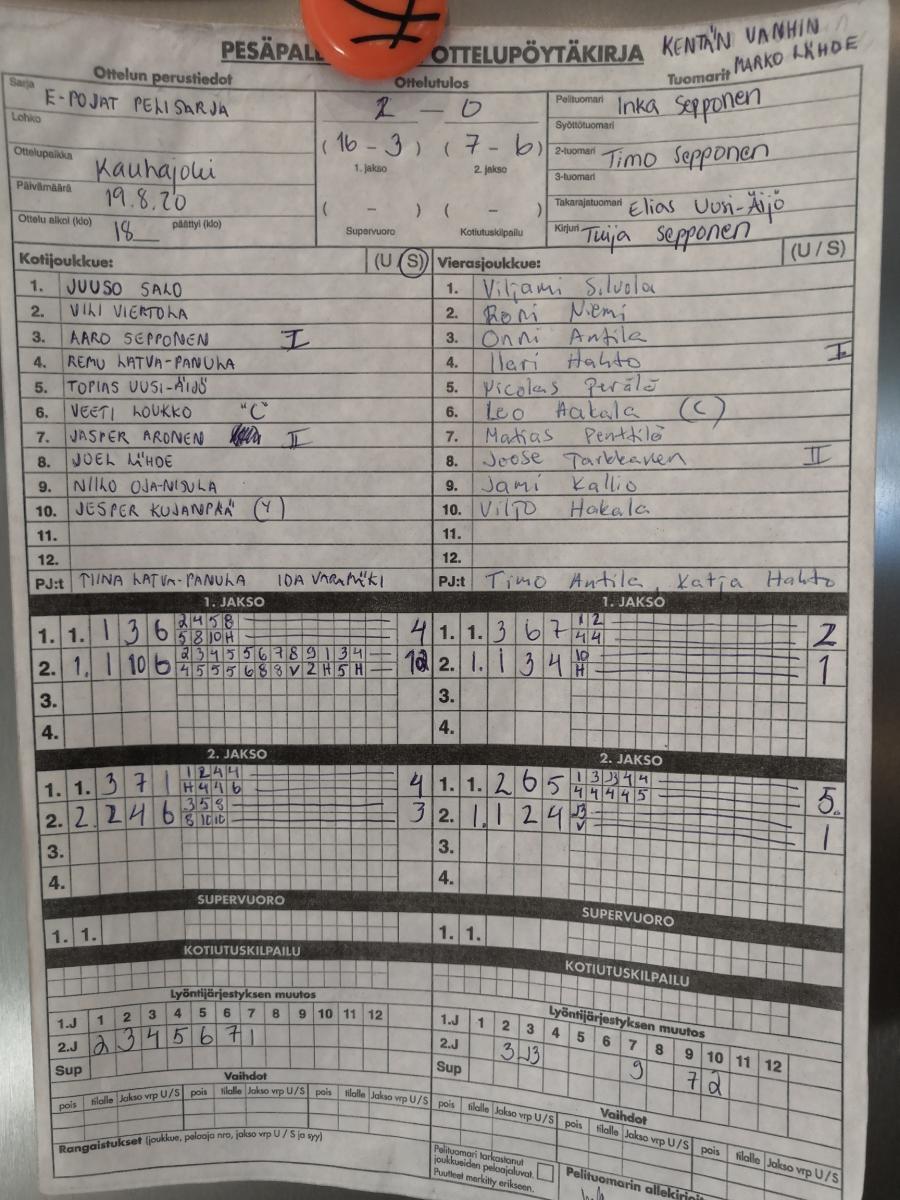 PESÄPALL OTTELUPÖYTÄKIRJA
KENTÄN VANHIN
MARKO LÄHDE
Ottelun perustiedot
Ottelutulos
Tuomarit
Sarja E-POJAT PELISARJA
2 - 0
Pelituomari Inka Sepponen
Lohko
Syöttötuomari
Ottelupaikka Kauhajoki
(16 - 3) (7 - 6)
1. jakso 2. jakso
2-tuomari Timo Sepponen
3-tuomari
Päivämäärä 19.8.20
( - ) ( - )
Takarajatuomari Elias Uusi-Äijö
Ottelu alkoi (klo) 18 päättyi (klo)
Supervuoro Kotiutuskilpailu
Kirjuri Tuija Sepponen
Kotijoukkue: (U / S)
1. JUUSO SALO
2. VILI VIERTOLA
3. AARO SEPPONEN I
4. REMU LATVA-PANULA
5. TOPIAS UUSI-ÄIJÖ
6. VEETI LOUKKO "C"
7. JASPER ARONEN II
8. JOEL LÄHDE
9. NIILO OJA-NISULA
10. JESPER KUJANPÄÄ (Y)
11.
12.
PJ:t TIINA LATVA-PANULA IDA VARAMÄKI
Vierasjoukkue: (U / S)
1. Viljami Siluola
2. Roni Niemi
3. Onni Antila
4. Ilari Hahto I
5. Nicolas Perälä
6. Leo Aakala (C)
7. Matias Penttilä
8. Joose Tarkkanen II
9. Jami Kallio
10. Viljo Hakala
11.
12.
PJ:t Timo Antila, Katja Hahto
1. JAKSO
1. 1. 1 3 6 4
2 4 5 8
5 8 10 H
2. 1. 1 10 6 12
2 3 4 5 5 6 7 8 9 1 3 4
4 5 5 5 6 8 8 V 2 H 5 H
3.
4.
1. JAKSO
1. 1. 3 6 7 2
1 2
4 4
2. 1. 1 3 4 1
10
H
3.
4.
2. JAKSO
1. 1. 3 7 1 4
1 2 4 4
H 4 4 6
2. 2. 2 4 6 3
3 5 8
8 10 10
3.
4.
2. JAKSO
1. 1. 2 6 5 5.
1 3 J3 4 4
4 4 4 4 5
2. 1. 1 2 4 1
J3
V
3.
4.
SUPERVUORO
1. 1.
SUPERVUORO
1. 1.
KOTIUTUSKILPAILU
KOTIUTUSKILPAILU
Lyöntijärjestyksen muutos
1.J 1 2 3 4 5 6 7 8 9 10 11 12
2.J 2 3 4 5 6 7 1
Sup
Vaihdot
pois tilalle Jakso vrp U/S pois tilalle Jakso vrp U/S pois tilalle Jakso vrp U/S
Rangaistukset (joukkue, pelaaja nro, jakso vrp U / S ja syy)
Lyöntijärjestyksen muutos
1.J 1 2 3 4 5 6 7 8 9 10 11 12
2.J 3 J3 9 7 2
Sup
Vaihdot
pois tilalle Jakso vrp U/S pois tilalle Jakso vrp U/S pois tilalle Jakso vrp U/S
Pelituomari tarkastanut
joukkueiden pelaajaluvat.
Puutteet merkitty erikseen.
Pelituomarin allekirjoit